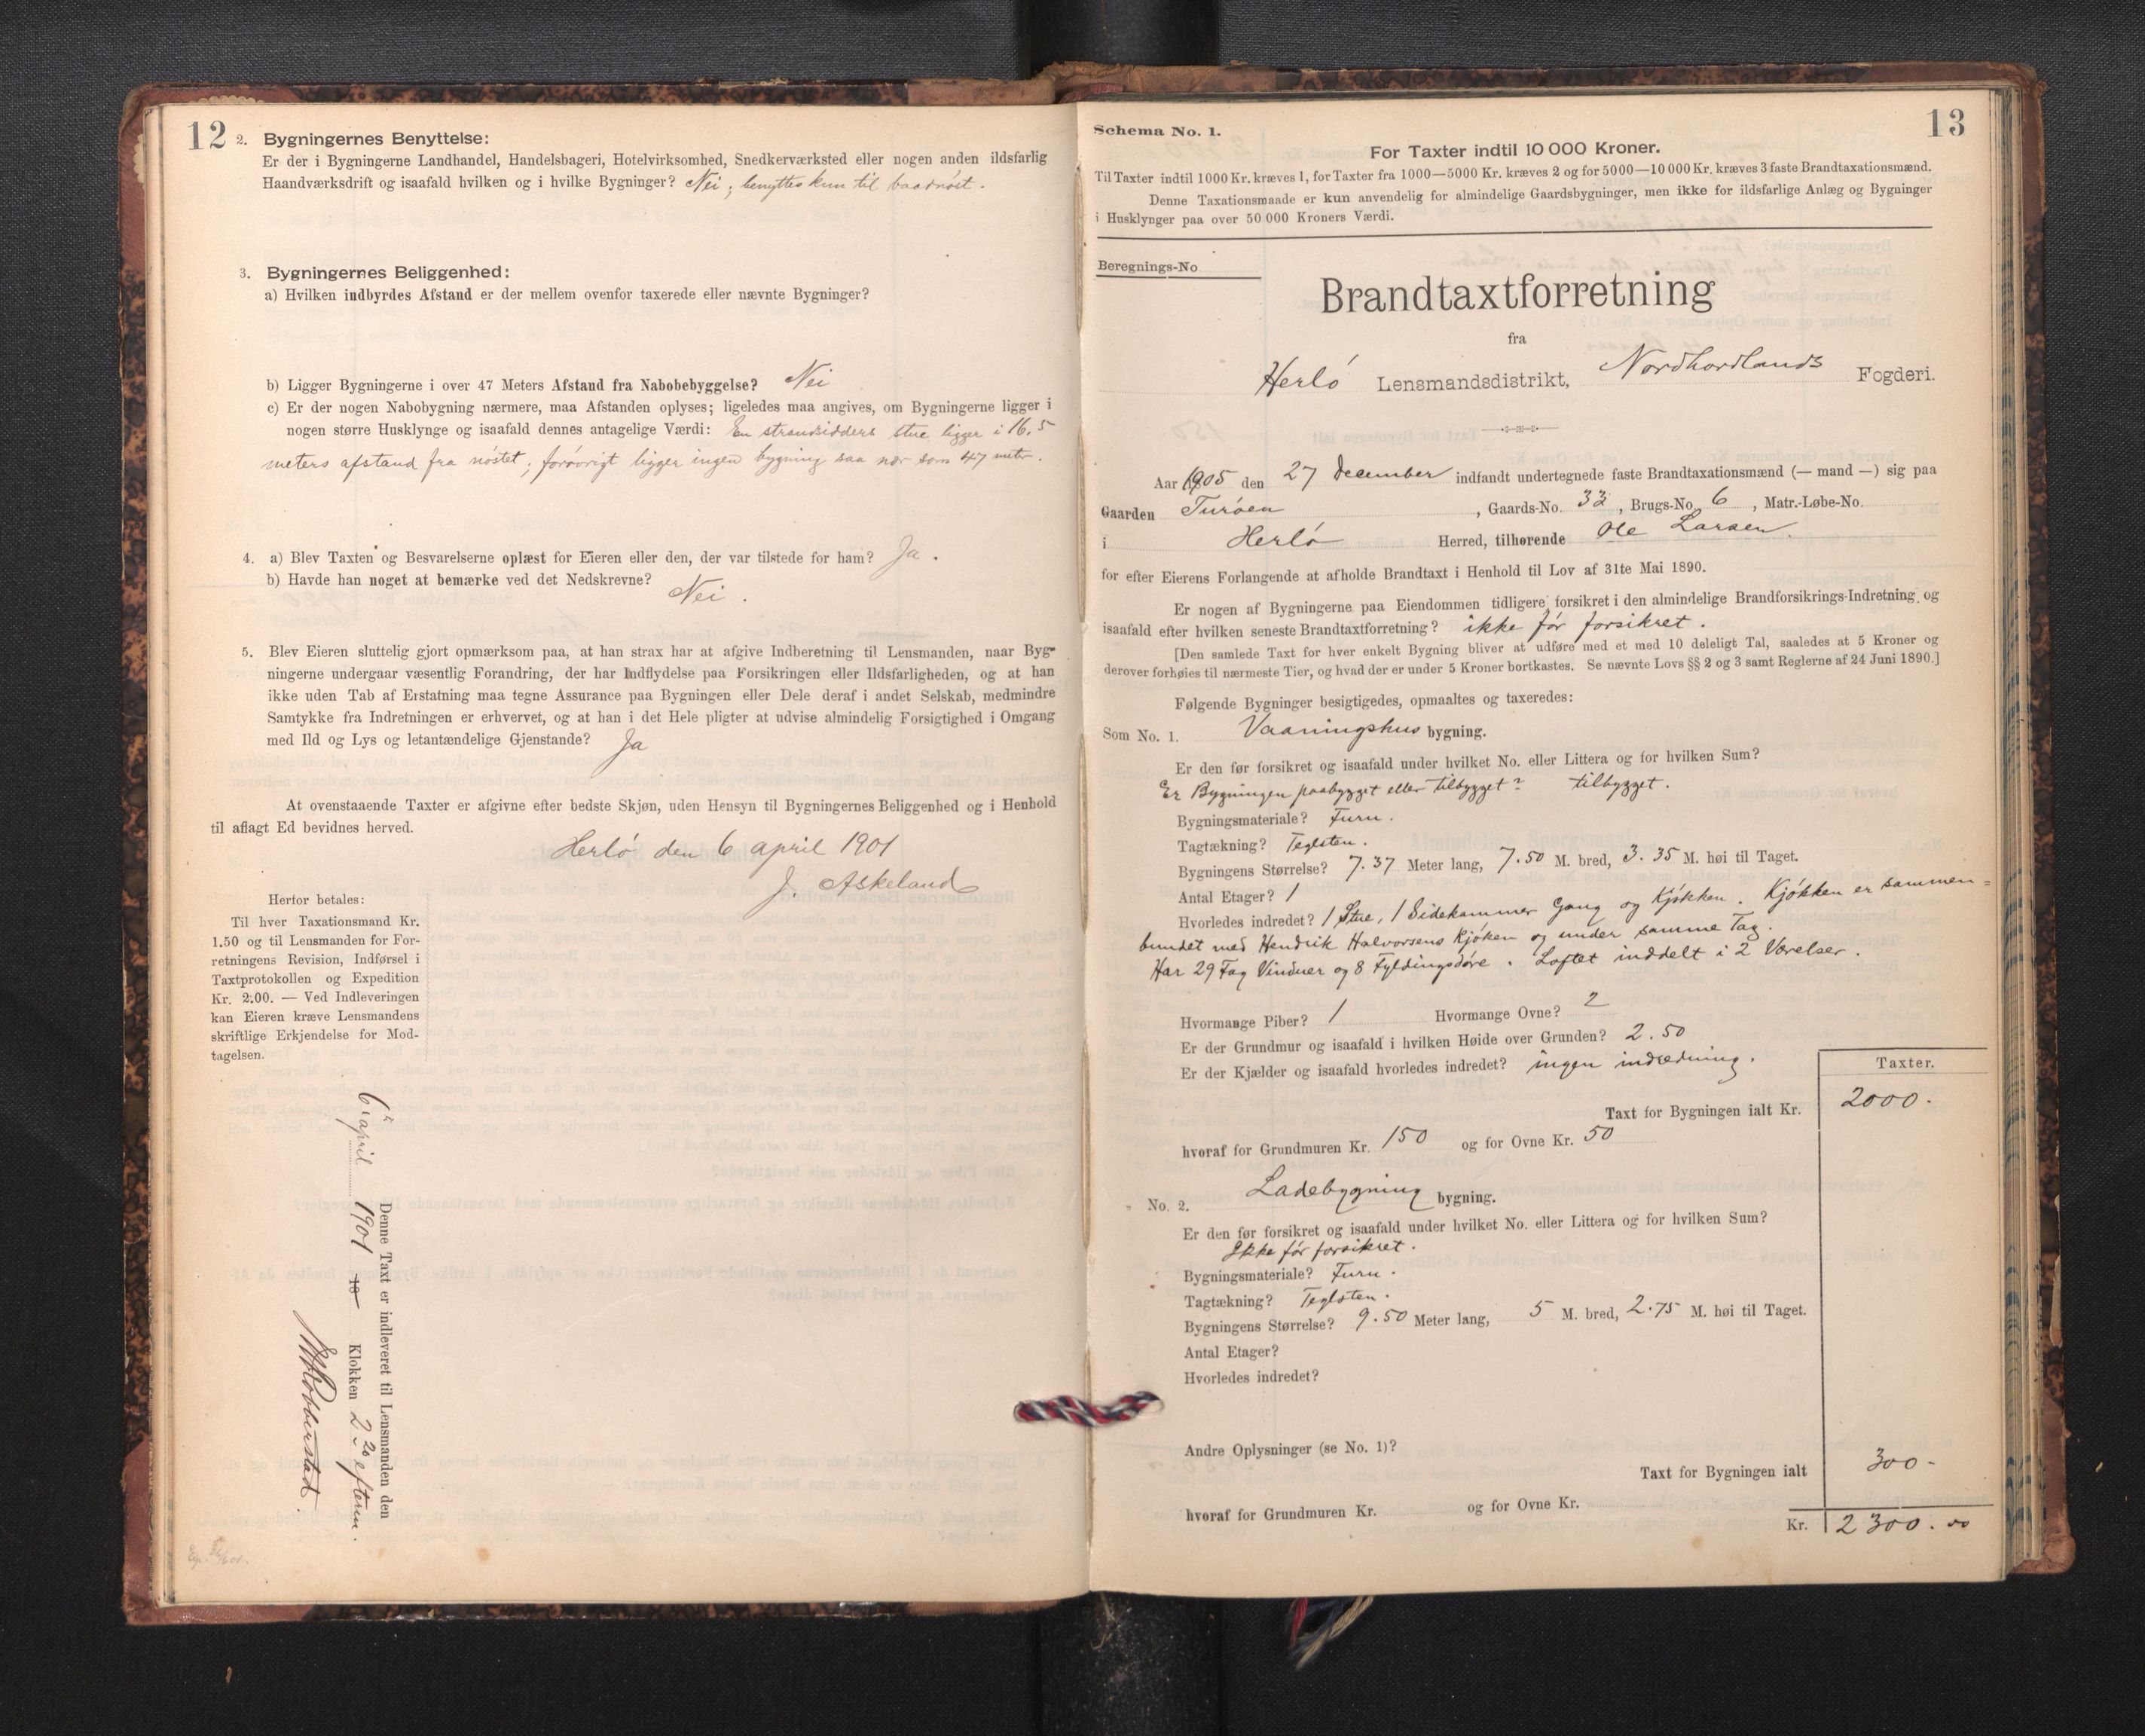 12
2. Bygningernes Benyttelse:
Er der i Bygningerne Landhandel, Handelsbageri, Hotelvirksomhed, Snedkerværksted eller nogen anden ildsfarlig
Haandværksdrift og isaafald hvilken og i hvilke Bygninger? Nei; benyttes kun til baadnöst.
3. Bygningernes Beliggenhed:
a) Hvilken indbyrdes Afstand er der mellem ovenfor taxerede eller nævnte Bygninger?
b) Ligger Bygningerne i over 47 Meters Afstand fra Nabobebyggelse? Nei
c) Er der nogen Nabobygning nærmere, maa Afstanden oplyses; ligeledes maa angives, om Bygningerne ligger i
nogen større Husklynge og isaafald dennes antagelige Værdi: En strandsidders stue ligger i 16.5
meters afstand fra nöstet; forövrigt ligger ingen bygning saa nær som 47 meter.
4. a) Blev Taxten og Besvarelserne oplæst for Eieren eller den, der var tilstede for ham? Ja.
b) Havde han noget at bemærke ved det Nedskrevne? Nei.
5. Blev Eieren sluttelig gjort opmærksom paa, at han strax har at afgive Indberetning til Lensmanden, naar Byg-
ningerne undergaar væsentlig Forandring, der har Indflydelse paa Forsikringen eller Ildsfarligheden, og at han
ikke uden Tab af Erstatning maa tegne Assurance paa Bygningen eller Dele deraf i andet Selskab, medmindre
Samtykke fra Indretningen er erhvervet, og at han i det Hele pligter at udvise almindelig Forsigtighed i Omgang
med Ild og Lys og letantændelige Gjenstande? Ja
At ovenstaaende Taxter er afgivne efter bedste Skjøn, uden Hensyn til Bygningernes Beliggenhed og i Henhold
til aflagt Ed bevidnes herved.
Herlö den 6 april 1901
J. Askeland
Herfor betales:
Til hver Taxationsmand Kr.
1.50 og til Lensmanden for For-
retningens Revision, Indførsel i
Taxtprotokollen og Expedition
Kr. 2.00. — Ved Indleveringen
kan Eieren kræve Lensmandens
skriftlige Erkjendelse for Mod-
tagelsen.
Denne Taxt er indleveret til Lensmanden den
6 april 1901 18 Klokken 2 30 efterm.
13
Schema No. 1.
For Taxter indtil 10 000 Kroner.
Til Taxter indtil 1000 Kr. kræves 1, for Taxter fra 1000—5000 Kr. kræves 2 og for 5000—10 000 Kr. kræves 3 faste Brandtaxationsmænd.
Denne Taxationsmaade er kun anvendelig for almindelige Gaardsbygninger, men ikke for ildsfarlige Anlæg og Bygninger
i Husklynger paa over 50 000 Kroners Værdi.
Beregnings-No
Brandtaxtforretning
fra
Herlö Lensmandsdistrikt, Nordhordlands Fogderi.
Aar 1905 den 27 december indfandt undertegnede faste Brandtaxationsmænd (— mand —) sig paa
Gaarden Turöen, Gaards-No. 33, Brugs-No. 6, Matr.-Løbe-No.
i Herlö Herred, tilhørende Ole Larsen.
for efter Eierens Forlangende at afholde Brandtaxt i Henhold til Lov af 31te Mai 1890.
Er nogen af Bygningerne paa Eiendommen tidligere forsikret i den almindelige Brandforsikrings-Indretning og
isaafald efter hvilken seneste Brandtaxtforretning? ikke för forsikret.
[Den samlede Taxt for hver enkelt Bygning bliver at udføre med et med 10 deleligt Tal, saaledes at 5 Kroner og
derover forhøies til nærmeste Tier, og hvad der er under 5 Kroner bortkastes. Se nævnte Lovs §§ 2 og 3 samt Reglerne af 24 Juni 1890.]
Følgende Bygninger besigtigedes, opmaaltes og taxeredes:
Som No. 1. Vaaningshus bygning.
Er den før forsikret og isaafald under hvilket No. eller Littera og for hvilken Sum?
Er Bygningen paabygget eller tilbygget? tilbygget.
Bygningsmateriale? Furu.
Tagtækning? Teglsten.
Bygningens Størrelse? 7.37 Meter lang, 7.50 M. bred, 3.35 M. høi til Taget.
Antal Etager? 1
Hvorledes indredet? 1 Stue, 1 Sidekammer Gang og Kjökken. Kjökken er sammen=
bundet med Hendrik Halvorsens Kjöken og under samme Tag.
Har 29 Fag Vinduer og 8 Fyldingsdöre. Loftet inddelt i 2 Værelser.
Hvormange Piber? 1 Hvormange Ovne? 2
Er der Grundmur og isaafald i hvilken Høide over Grunden? 2.50
Er der Kjælder og isaafald hvorledes indredet? ingen indredning.
Taxter.
Taxt for Bygningen ialt Kr. 2000.
hvoraf for Grundmuren Kr. 150 og for Ovne Kr. 50
" No. 2. Ladebygning bygning.
Er den før forsikret og isaafald under hvilket No. eller Littera og for hvilken Sum?
Ikke för forsikret.
Bygningsmateriale? Furu.
Tagtækning? Teglsten.
Bygningens Størrelse? 9.50 Meter lang, 5 M. bred, 2.75 M. høi til Taget.
Antal Etager?
Hvorledes indredet?
Andre Oplysninger (se No. 1)?
Taxt for Bygningen ialt 300-
hvoraf for Grundmuren Kr. og for Ovne Kr.
Kr. 2300.00